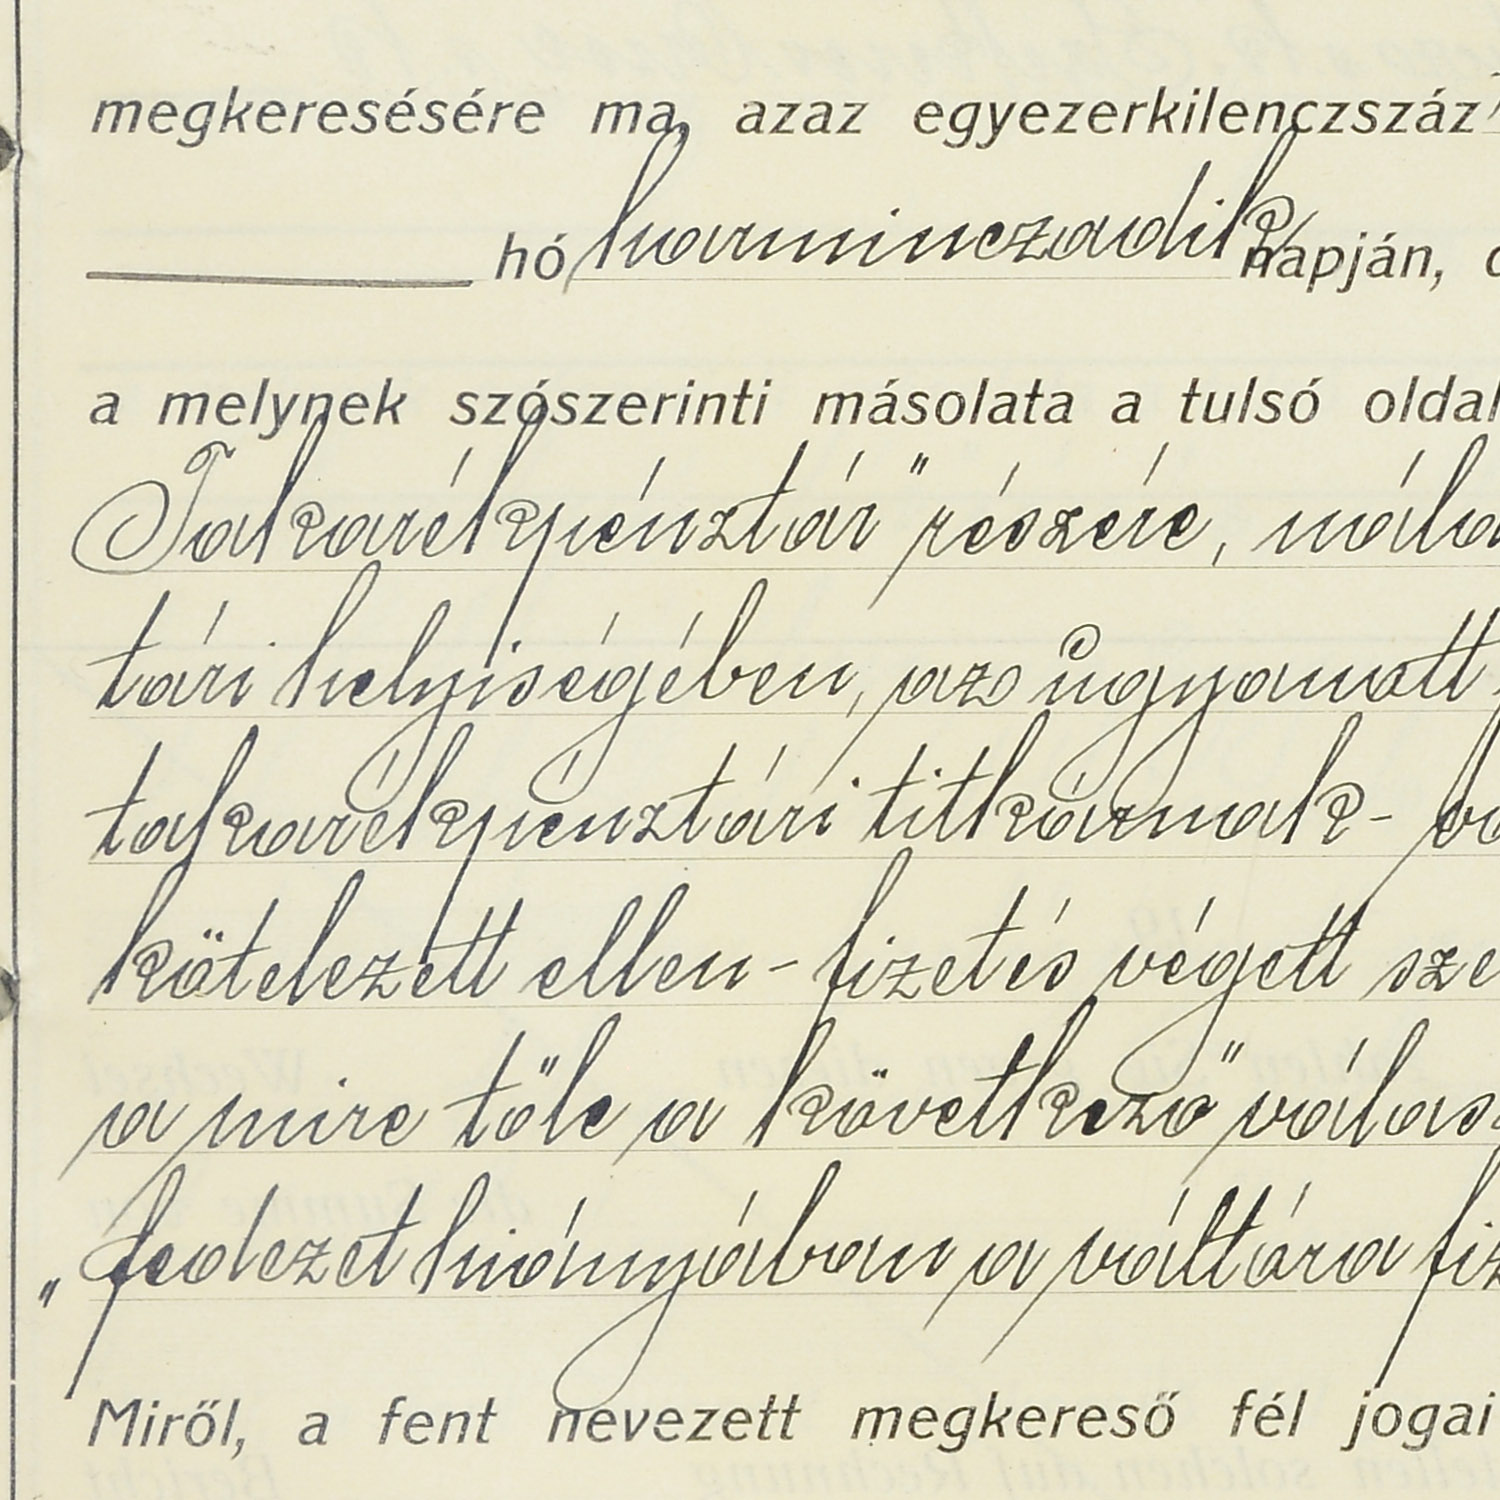 megkeresésére ma, azaz egyezerkilenczszáz
hó harminczadik napján,
a melynek szószerinti másolata a tulsó oldal
Takarékpénztár" részére,
tári helyiségében, az ugyanott
takarékpénztári titkárnak-
kötelezett ellen - fizetés végett
a mire tőle a következő válasz
„fedezet hiányában a váltóra
Miről, a fent nevezett megkereső fél jogai